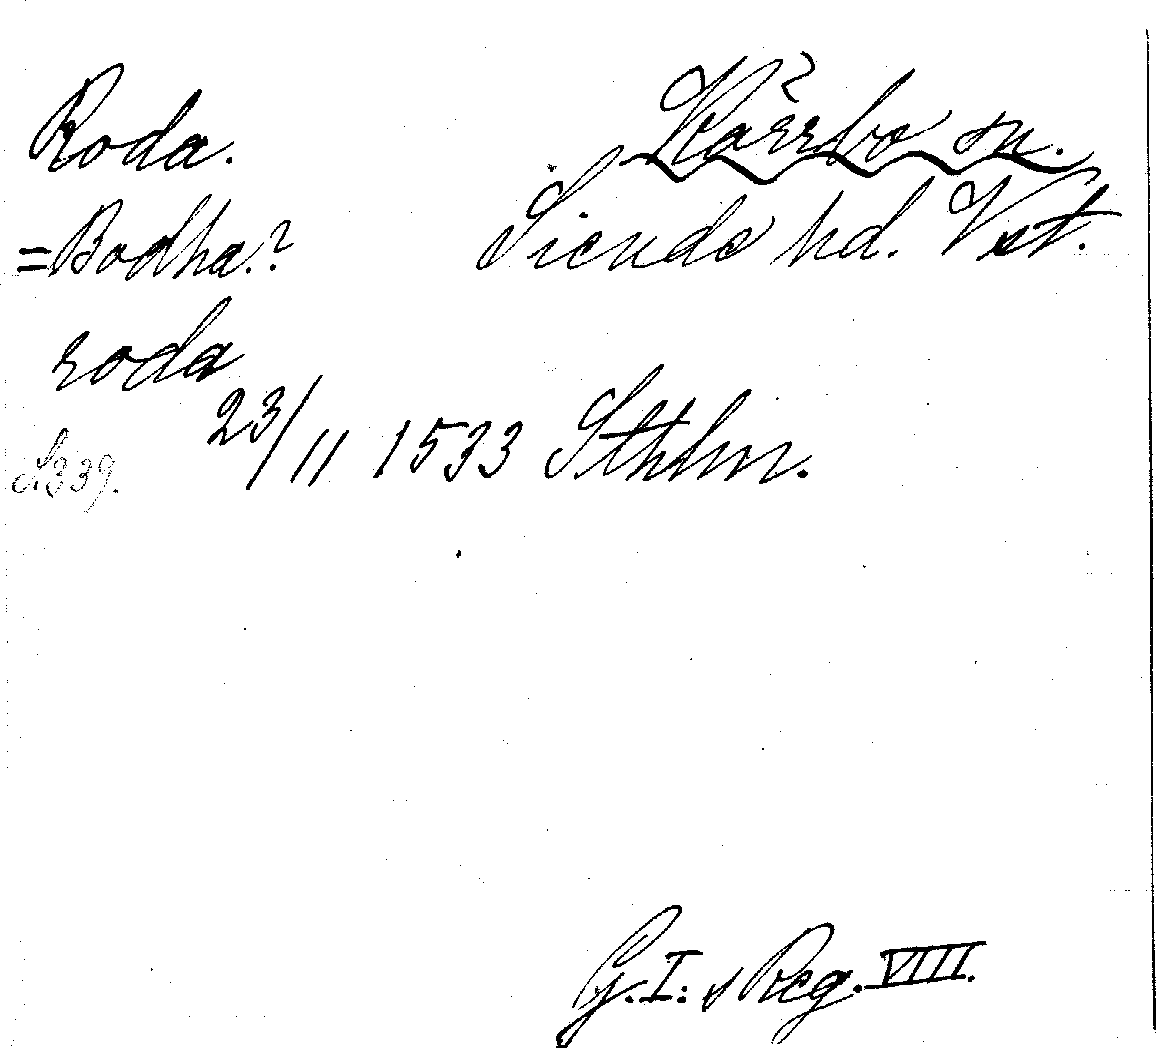 Roda.
Kärrbo sn.
?
=Bodha.?
Siende hd. Vst.
roda
23/11 1533 Sthlm.
S. 339.
G. I:s Reg. VIII.